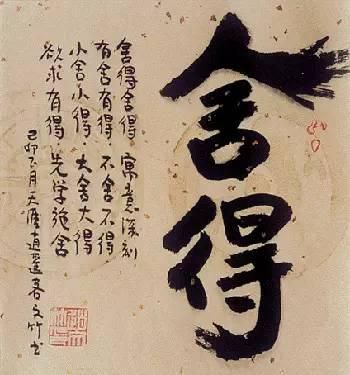 舍得
舍得舍得 寓意深刻
有舍有得·不舍不得
小舍小得·大舍大得
欲求有得·先学施舍
己卯月天涯逍遥客文竹书